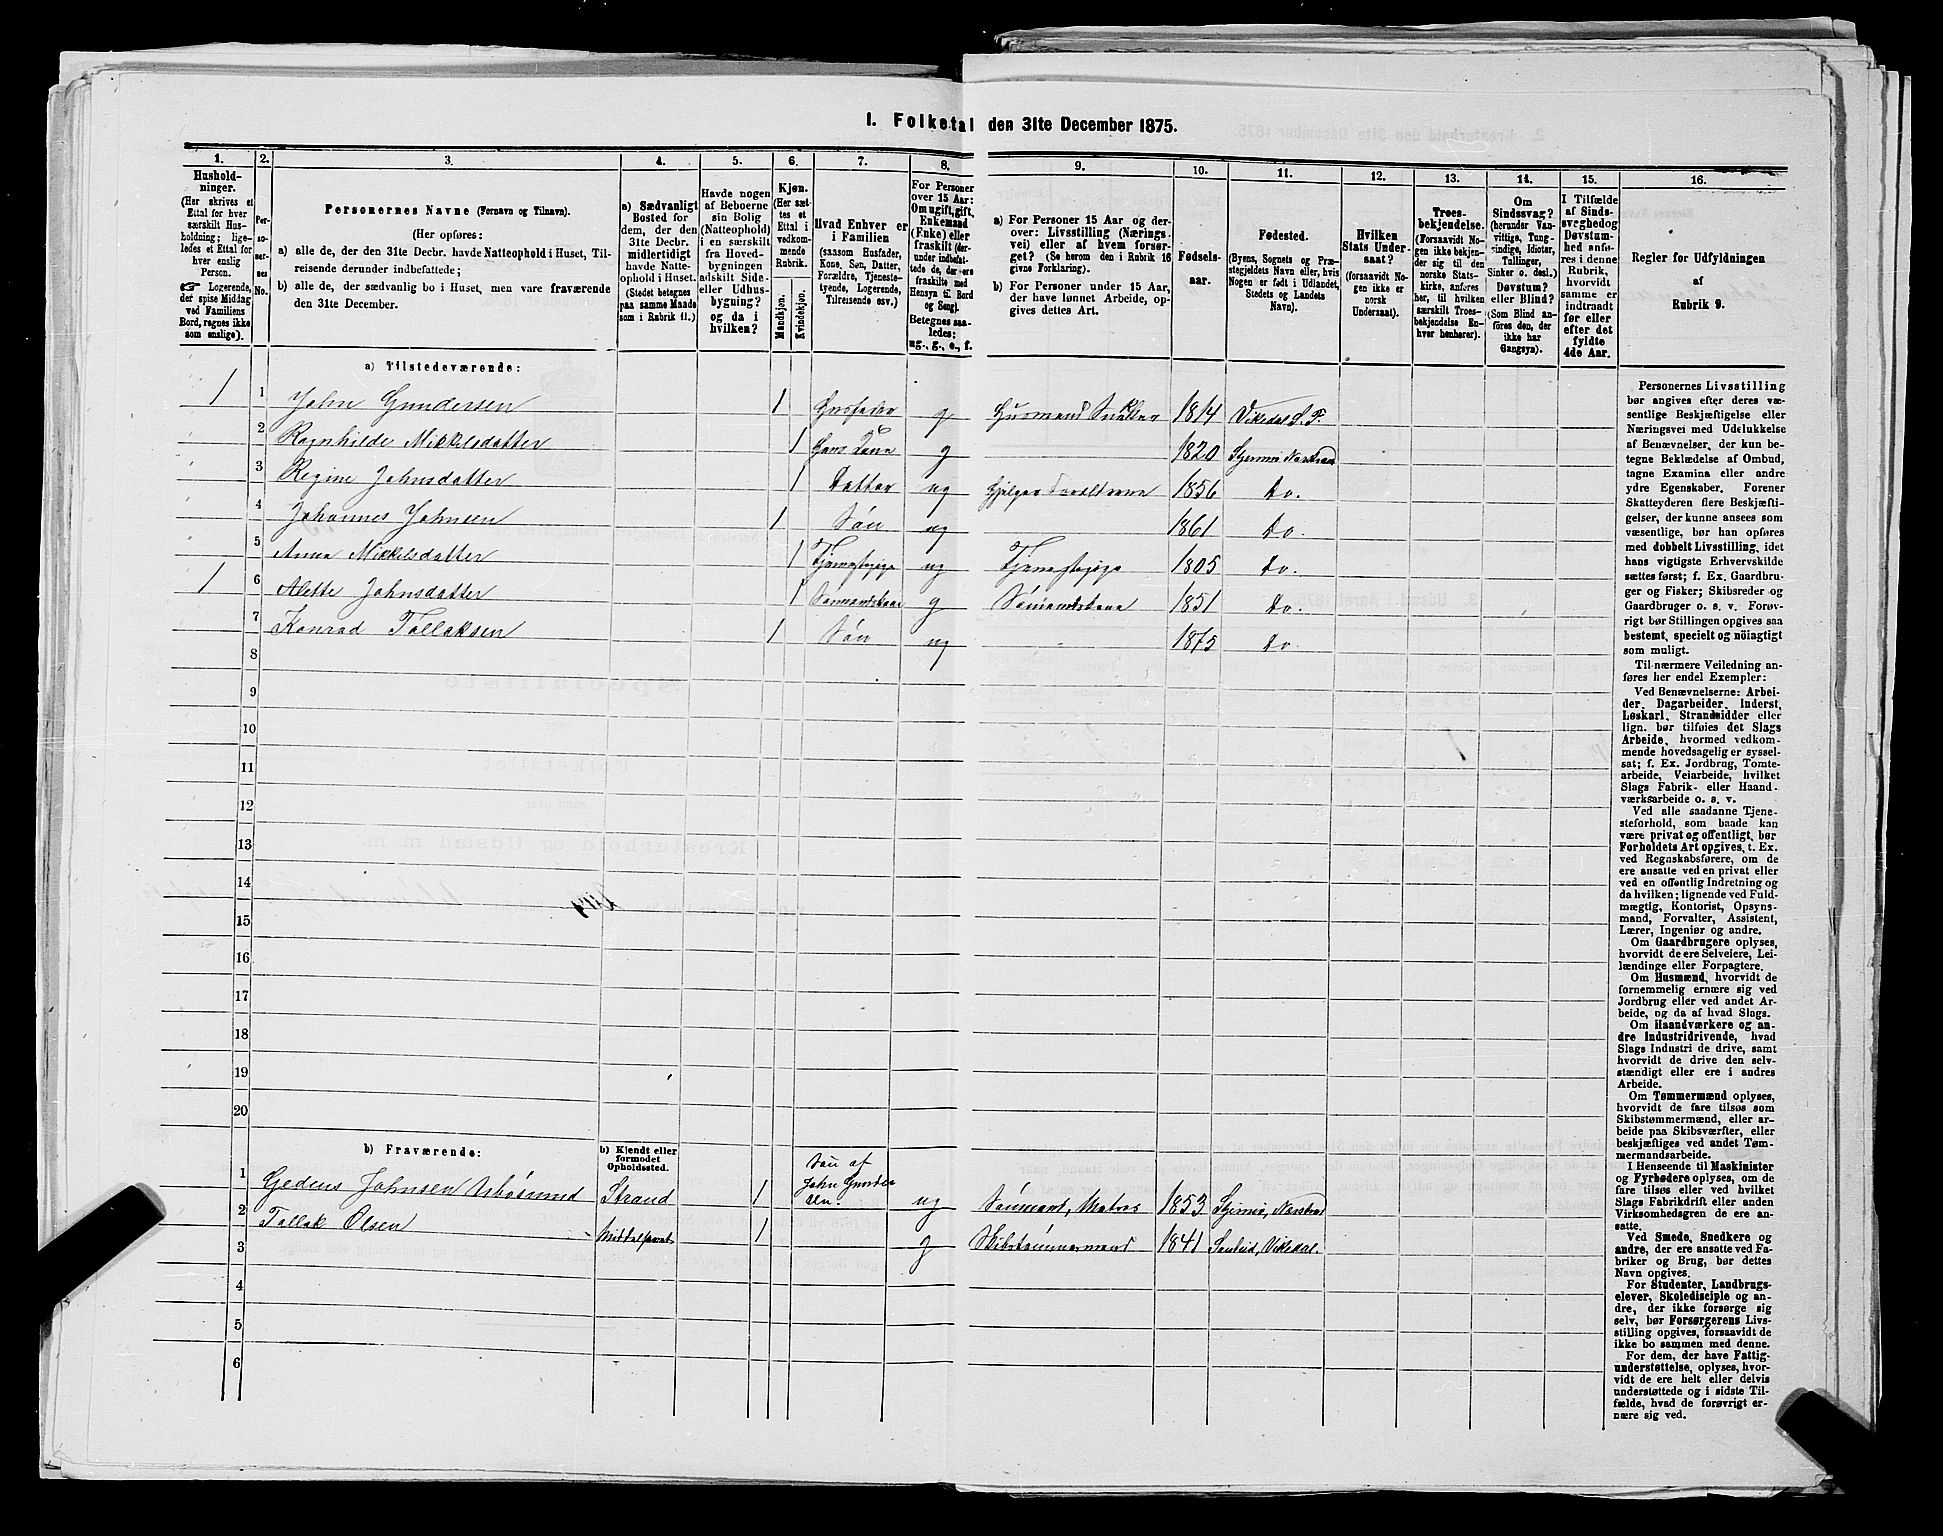 I. Folketal den 31te December 1875.
1. 2. 3. 4. 5. 6. 7. 8. 9. 10. 11. 12. 13. 14. 15. 16.
Hushold-
ninger.
(Her skrives et
Ettal for hver
særskilt Hus-
holdning; lige-
ledes et Ettal for
hver enslig
Person.
☞ Logerende,
der spise Middag
ved Familiens
Bord, regnes ikke
som enslige).
Per-
so-
ner-
nes
No.
Personernes Navne (Fornavn og Tilnavn).
(Her opføres:
a) alle de, der den 31te Decbr. havde Natteophold i Huset, Til-
reisende derunder indbefattede;
b) alle de, der sædvanlig bo i Huset, men vare fraværende
den 31te December.
a) Sædvanligt
Bosted for
dem, der den
31te Decbr.
midlertidigt
havde Natte-
ophold i Huset.
(Stedet betegnes
paa samme Maade
som i Rubrik 11.)
Havde nogen
af Beboerne
sin Bolig
(Natteophold)
i en særskilt
fra Hoved-
bygningen
adskilt Side-
eller Udhus-
bygning?
og da i
hvilken?
Kjøn.
(Her sæt-
tes et
Ettal i
vedkom-
mende
Rubrik.
Mandkjøn.
Kvindekjøn.
Hvad Enhver er
i Familien
(saasom Husfader,
Kone, Søn, Datter,
Forældre, Tjeneste-
tyende, Logerende,
Tilreisende osv.)
For Personer
over 15 Aar:
Om ugift, gift,
Enkemand
(Enke) eller
fraskilt (der-
under indbefat-
tede de, der ere
fraskilte med
Hensyn til Bord
og Seng).
Betegnes saa-
ledes:
ug., g., e., f.
a) For Personer 15 Aar og der-
over: Livsstilling (Nærings-
vei) eller af hvem forsør-
get? (Se herom den i Rubrik 16
givne Forklaring).
b) For Personer under 15 Aar,
der have lønnet Arbeide, op-
gives dettes Art.
Fødsels-
aar.
Fødested.
(Byens, Sognets og Præ-
stegjeldets Navn eller, hvis
Nogen er født i Udlandet,
Stedets og Landets
Navn).
Hvilken
Stats Under-
saat?
(forsaavidt No-
gen ikke er
norsk
Undersaat).
Troes-
bekjendelse.
(Forsaavidt No-
gen ikke bekjen-
der sig til den
norske Stats-
kirke, anføres
her, til hvilken
særskilt Troes-
bekjendelse En-
hver henhører).
Om
Sindssvag?
(herunder Van-
vittige, Tung-
sindige, Idioter,
Tullinger,
Sinker o. desl.)
Døvstum?
eller Blind?
(Som Blind an-
føres den, der
ikke har
Gangsyn).
I Tilfælde
af Sinds-
svaghed og
Døvstum-
hed anfø-
res i denne
Rubrik,
hvorvidt
samme er
indtraadt
før eller
efter det
fyldte
4de Aar.
Regler for Udfyldningen
af
Rubrik 9.
a) Tilstedeværende:
1 1 John Gundersen 1 Husfader g Husmand Snekker 1814 Vikedal S. P.
2 Ragnhilde Mikkelsdatter 1 Hans Kone g 1820 Skjernø
3 Regine Johnsdatter 1 Datter ug 1856 Do.
4 Johannes Johnsen 1 Søn ug 1861 Do.
5 Anna Mikkelsdatter 1 ug 1805 Do.
1 6 Alette Johnsdatter 1 Sømandskone g Sømandskone 1851 Do.
7 Konrad Tollaksen 1 Søn ug 1875 Do
8
9
10
11
12
13
14
15
16
17
18
19
20
b) Fraværende:
b) Kjendt eller
formodet
Opholdssted.
Søn af
John Gunder
sen.
1 Gedeus Johnsen Strand 1 ug Sømand, Matros 1853
2 Tollak Olsen 1 g Skibstømmermand 1841 Vikedal.
3
4
5
6
Personernes Livsstilling
bør angives efter deres væ-
sentlige Beskjæftigelse eller
Næringsvei med Udelukkelse
af Benævnelser, der kun be-
tegne Beklædelse af Ombud,
tagne Examina eller andre
ydre Egenskaber. Forener
Skatteyderen flere Beskjæfti-
gelser, der kunne ansees som
væsentlige, bør han opføres
med dobbelt Livsstilling, idet
hans vigtigste Erhvervskilde
sættes først; f. Ex. Gaardbru-
ger og Fisker; Skibsreder og
Gaardbruger o. s. v. Forøv-
rigt bør Stillingen opgives saa
bestemt, specielt og nöiagtigt
som muligt.
Til nærmere Veiledning an-
føres her endel Exempler:
Ved Benævnelserne: Arbei-
der, Dagarbeider, Inderst,
Løskarl, Strandsidder eller
lign. bør tilføies det Slags
Arbeide, hvormed vedkom-
mende hovedsagelig er syssel-
sat; f. Ex. Jordbrug, Tomte-
arbeide, Veiarbeide, hvilket
Slags Fabrik- eller Haand-
værksarbeide o. s. v.
Ved alle saadanne Tjene-
steforhold, som baade kan
være privat og offentligt, bør
Forholdets Art opgives, t. Ex.
ved Regnskabsførere, om de
ere ansatte ved en privat eller
ved en offentlig Indretning og
da hvilken; lignende ved Fuld-
mægtig, Kontorist, Opsyns-
mand, Forvalter, Assistent,
Lærer, Ingeniør og andre.
Om Gaardbrugere oplyses,
hvorvidt de ere Selveiere, Lei-
lændinge eller Forpagtere.
Om Husmænd, hvorvidt de
fornemmelig ernære sig ved
Jordbrug eller ved andet Ar-
beide, og da af hvad Slags.
Om Haandværkere og an-
dre Industridrivende, hvad
Slags Industri de drive, samt
hvorvidt de drive den selv-
stændigt eller ere i andres
Arbeide.
Om Tømmermænd oplyses,
hvorvidt de fare tilsøs som
Skibstømmermænd, eller ar-
beide paa Skibsværfter, eller
beskjæftiges ved andet Tøm-
mermandsarbeide.
I Henseende til Maskinister
og Fyrbødere oplyses, om de
fare tilsøs eller ved hvilket
Slags Fabrikdrift eller anden
Virksomhedsgren de ere an-
satte.
Ved Smede, Snedkere og
andre, der ere ansatte ved Fa-
briker og Brug, bør dettes
Navn opgives.
For Studenter, Landbrugs-
elever, Skoledisciple og an-
dre, der ikke forsørge sig
selv, bør Forsørgerens Livs-
stilling opgives, forsaavidt de
ikke bo sammen med denne.
For dem, der have Fattig-
understøttelse, oplyses, hvor-
vidt de ere helt eller delvis
understøttede og i sidste Til-
fælde, hvad de forøvrigt er-
nære sig ved.